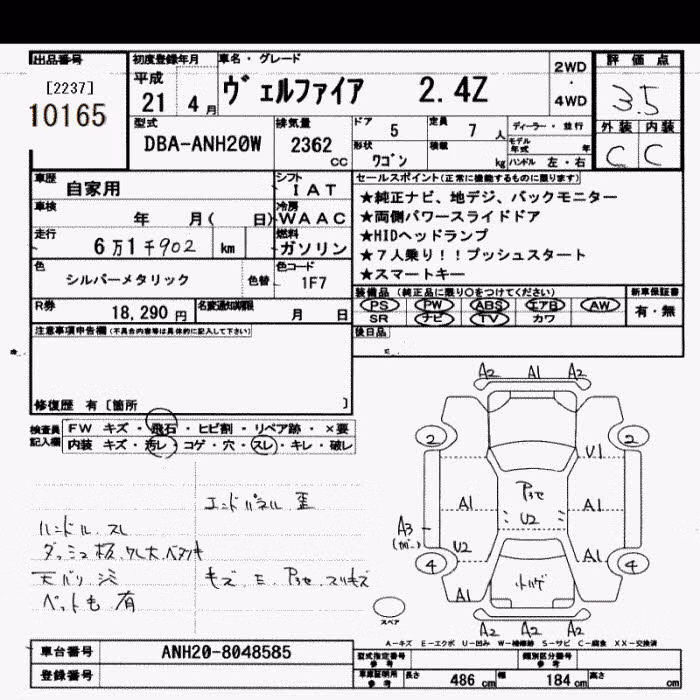 出品番号 初度登録年月 車名・グレード 評価点
[2237] 平成 2WD
10165 21 4月 ヴェルファイア 2.4Z ・ 3.5
4WD
型式 排気量 ドア 5 定員 7人 ディーラー・並行 外装 内装
DBA-ANH20W 2362cc 形状 ワゴン 積載 kg モデル年式 年 C C
ハンドル 左・右
車歴 自家用 シフト IAT セールスポイント(正常に機能するものに限ります)
車検 年 月( 日) 冷房 WAAC ★純正ナビ、地デジ、バックモニター
★両側パワースライドドア
走行 6万1千902 km 燃料 ガソリン ★HIDヘッドランプ
★7人乗り!!プッシュスタート
色 シルバーメタリック 色替 色コード 1F7 ★スマートキー
R券 18,290円 名変通知期限 月 日 装備品(純正品に限り○をつけてください) 新車保証書
PS PW ABS エアB AW 有・無
SR ナビ TV カワ
注意事項申告欄(不具合内容等は具体的に記入して下さい) 後日品
修復歴 有〔箇所 〕
検査員 FW キズ・飛石・ヒビ割・リペア跡・×要
記入欄 内装 キズ・汚レ・コゲ・穴・スレ・キレ・破レ
エンドパネル 歪
ハンドル スレ
天バリ シミ
ペット毛 有
A2 A1 A2
2 2
U1
A1 U2 A1
A3
U2 A1
4 4
A1
A2 A2 A2
スペア
A-キズ E-エクボ U-凹み W-補修跡 S-サビ C-腐食 XX-交換済
車台番号 ANH20-8048585 型式指定番号 参考 類別区分番号 参考
登録番号 車庫証明用 参考 長さ 486cm 幅 184cm 高さ cm